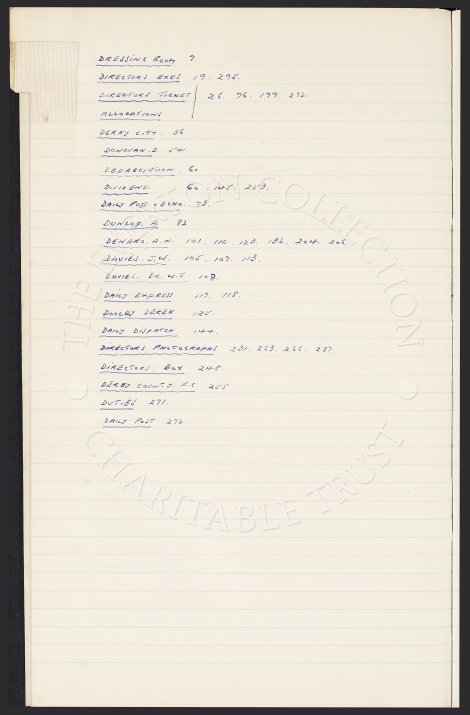 DRESSING ROOM 7
DIRECTORS EXES 19. 295.
DIRECTORS TICKET 26. 76. 199. 272
ALLOCATIONS
DERRY CITY. 36
DONOVAN. D 54
DEPRECIATION. 60
DIVIDEND. 60. 145. 253.
DAILY POST & ECHO. 73.
DUNLOP. A 82
DENARO. A.N. 101. 110. 123. 132. 204. 206.
DAVIES. J.W. 105. 107. 113.
DAVIES. DR. W.T. 108.
DAILY EXPRESS 117. 118.
DOOLEY DEREK 125.
DAILY DISPATCH 144.
DIRECTORS PHOTOGRAPHS 231. 263. 266. 287
DIRECTORS. BOX 248.
DERBY COUNTY. F.C 255
DUTIES 271.
DAILY POST 272.
THE COLLECTION
CHARITABLE TRUST